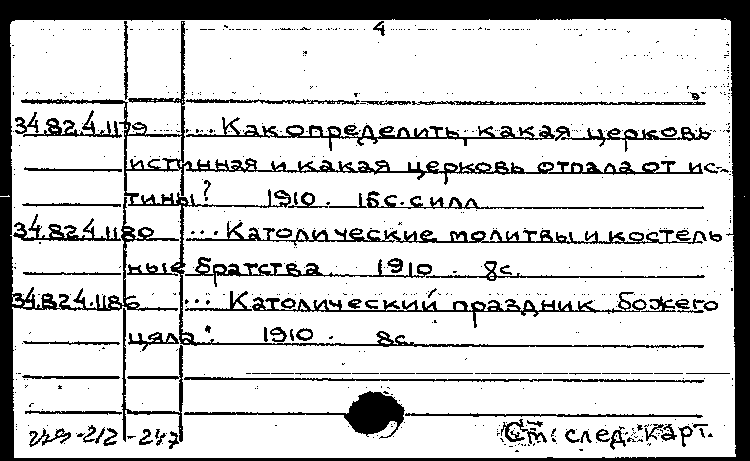 4
34.82.4.1179 ... Как определить, какая церковь
истинная и какая церковь отпала от ис-
тины? 1910. 15с. с илл
34.82.4.1180 ... Католические молитвы и костель-
ные братства. 1910. 8с.
34.82.4.1186 ... Католический праздник „божего
цяла". 1910. 8с.
249-212-247 См. след. карт.